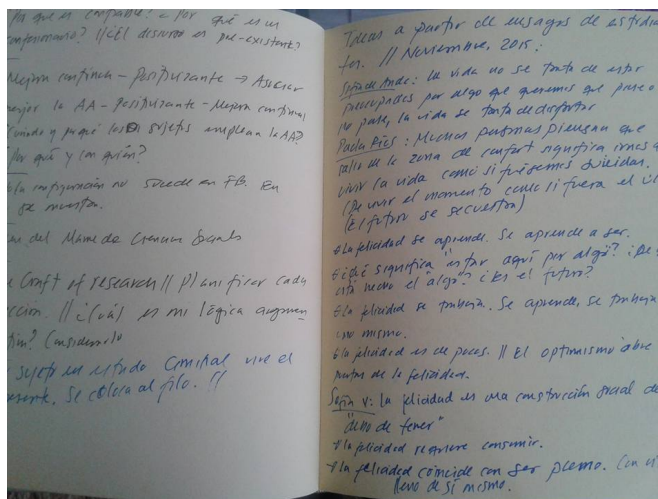 es confiable? ¿Por qué es un
confesionario? // ¿El discurso es pre-existente?
Mejora continua - Positivizante → Asociar
mejor la AA - positivizante - Mejora continua
y porqué los sujetos emplean la AA?
¿Por qué y con quién?
La configuración no sucede en FB. En
se muestra.
del Llamado Ciencias Sociales
Craft of research // Planificar cada
cción. // ¿Cuál es mi lógica argumen
Considerarlo
Sujeto en estado liminal vive el
Se coloca al filo. //
Ideas a partir de ensayos de estudian
tes. // Noviembre, 2015:
La vida no se trata de estar
preocupados por algo que queremos que pase o
no pase, la vida se trata de disfrutar
Paola Ríos: Muchas personas piensan que
salir de la zona de confort significa irnos a
vivir la vida como si fuésemos suicidas.
(De vivir el momento como si fuera el úl
(El futuro se secuestra)
La felicidad se aprende. Se aprende a ser.
¿Qué significa "estar aquí por algo"? ¿De
está hecho el "algo"? ¿Es el futuro?
La felicidad se trabaja. Se aprende, se trabaja
uno mismo.
La felicidad es de pocos. // El optimismo abre
puertas de la felicidad.
Según V: La felicidad es una construcción social de
"debo de tener"
La felicidad requiere consumir.
La felicidad coincide con ser pleno. Con
lleno de sí mismo.